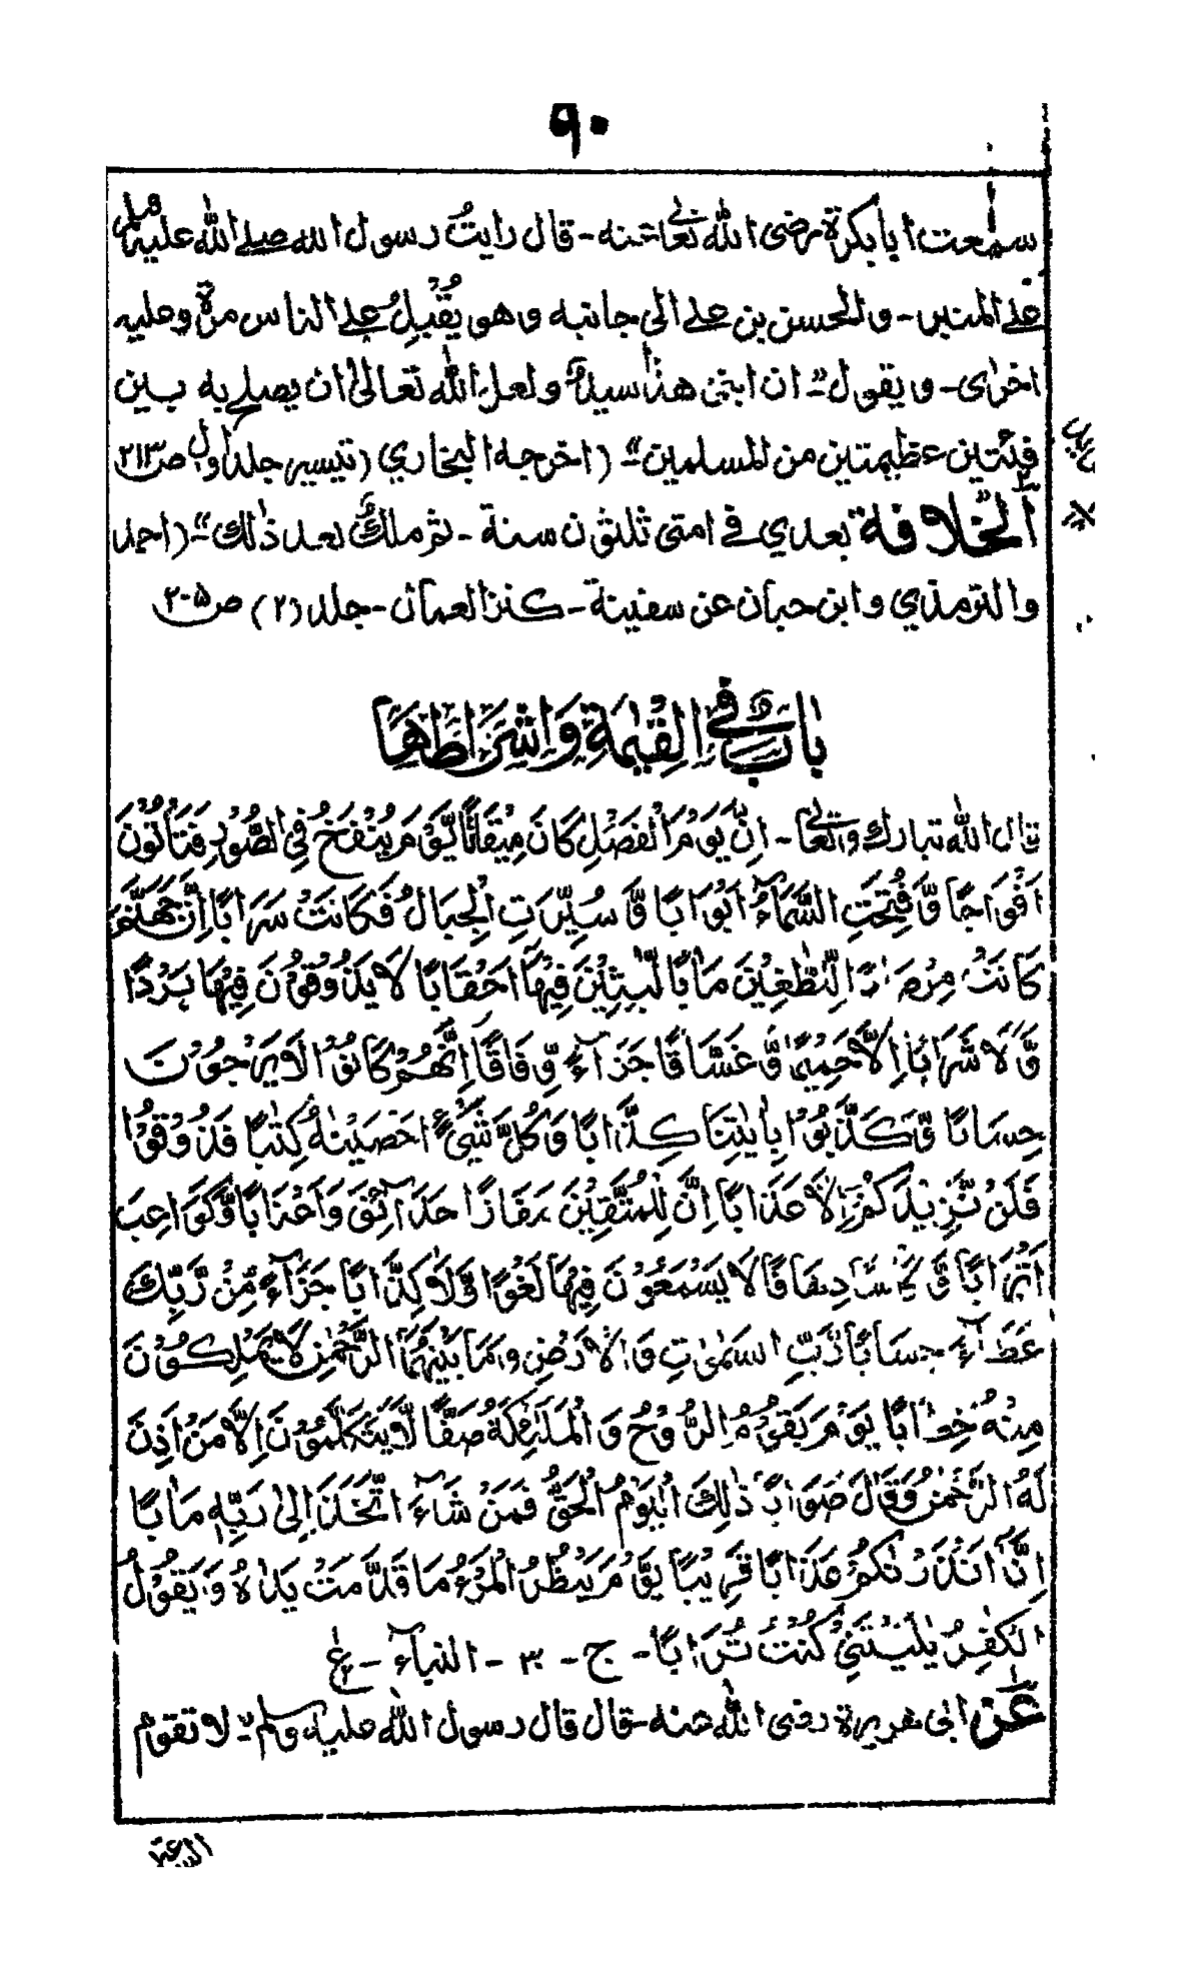 ٩٠
سمعت ابا بكرة رضى الله تعالى عنه - قال رايتُ رسول الله صلے الله عليه وسلم
علے المنبر - والحسن بن علے الى جانبه وهو يُقْبِلُ علے الناس مرّة وعليه
اخرٰى - ويقول "ان ابنى هذا سيدٌ ولعل الله تعالىٰ ان يصلح به بين
فئتين عظيمتين من المسلمين" (اخرجه البخاري (تيسير جلد اول ص ٢١٣
اَلخلافة بعدي في امتى ثلثون سنة - ثم ملكٌ بعد ذٰلك" (احمد
والترمذي وابن حبان عن سفينة - كنز العمال - جلد (٢) ص ٢٠٥
بَابٌ فِي الْقِيٰمَةِ وَاَشْرَاطِهَا
قال الله تبارك وتعالٰى - اِنَّ يَوْمَ الْفَصْلِ كَانَ مِيْقَاتًا يَّوْمَ يُنْفَخُ فِي الصُّوْرِ فَتَاْتُوْنَ
اَفْوَاجًا وَّفُتِحَتِ السَّمَآءُ اَبْوَابًا وَّ سُيِّرَتِ الْجِبَالُ فَكَانَتْ سَرَابًا اِنَّ جَهَنَّمَ
كَانَتْ مِرْصَادًا لِّلطّٰغِيْنَ مَاٰبًا لّٰبِثِيْنَ فِيْهَآ اَحْقَابًا لَا يَذُوْقُوْنَ فِيْهَا بَرْدًا
وَّلَا شَرَابًا اِلَّا حَمِيْمًا وَّ غَسَّاقًا جَزَآءً وِّفَاقًا اِنَّهُمْ كَانُوْا لَا يَرْجُوْنَ
حِسَابًا وَّكَذَّبُوْا بِاٰيٰتِنَا كِذَّابًا وَكُلَّ شَيْءٍ اَحْصَيْنٰهُ كِتٰبًا فَذُوْقُوْا
فَلَنْ نَّزِيْدَكُمْ اِلَّا عَذَابًا اِنَّ لِلْمُتَّقِيْنَ مَفَازًا حَدَآئِقَ وَاَعْنَابًا وَّكَوَاعِبَ
اَتْرَابًا وَّ كَاْسًا دِهَاقًا لَا يَسْمَعُوْنَ فِيْهَا لَغْوًا وَّلَا كِذَّابًا جَزَآءً مِّنْ رَّبِّكَ
عَطَآءً حِسَابًا رَّبِّ السَّمٰوٰتِ وَالْاَرْضِ وَمَا بَيْنَهُمَا الرَّحْمٰنِ لَا يَمْلِكُوْنَ
مِنْهُ خِطَابًا يَوْمَ يَقُوْمُ الرُّوْحُ وَ الْمَلٰٓئِكَةُ صَفًّا لَّا يَتَكَلَّمُوْنَ اِلَّا مَنْ اَذِنَ
لَهُ الرَّحْمٰنُ وَقَالَ صَوَابًا ذٰلِكَ الْيَوْمُ الْحَقُّ فَمَنْ شَآءَ اتَّخَذَ اِلٰى رَبِّهٖ مَاٰبًا
اِنَّآ اَنْذَرْنٰكُمْ عَذَابًا قَرِيْبًا يَّوْمَ يَنْظُرُ الْمَرْءُ مَا قَدَّمَتْ يَدٰهُ وَيَقُوْلُ
الْكٰفِرُ يٰلَيْتَنِيْ كُنْتُ تُرَابًا - ج - ٣٠ - النبآء - ع
عَن ابى هريرة رضى الله عنه - قال قال رسول الله عليه وسلم - لا تقوم